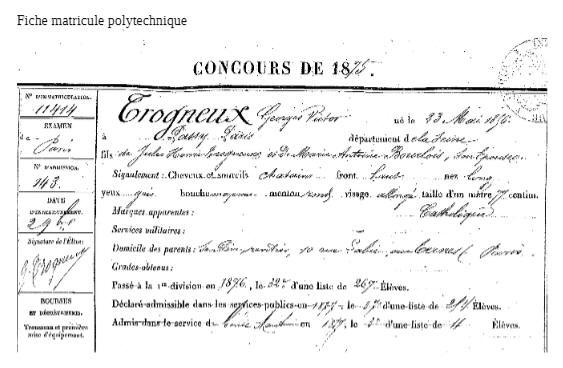 Fiche matricule polytechnique
CONCOURS DE 1875.
N° D'IMMATRICULATION.
11414
EXAMEN
de
Paris
N° D'ADMISSION.
143.
DATE
Signature de l'Élève:
G. Trogneux
BOURSES
ET DÉGRÈVEMENTS.
Trousseau et première
mise d'équipement.
Trogneux Georges Victor né le 23 Mai 1856
à Passy Paris département de la Seine
fils de Jules Henri Trogneux et de Marie Antoine son épouse
Signalement : Cheveux et sourcils châtains front nez long
yeux gris bouche moyenne menton rond visage allongé taille d'un mètre 77 centim.
Marques apparentes : Catholique
Services militaires :
Domicile des parents : rentier, 10 rue Paris
Grades obtenus :
Passé à la 1re division en 1876, le 32e d'une liste de 267 Élèves.
Déclaré admissible dans les services publics en 1877 le d'une liste de Élèves.
Admis dans le service du Génie Maritime en 187 le d'une liste de 4 Élèves.